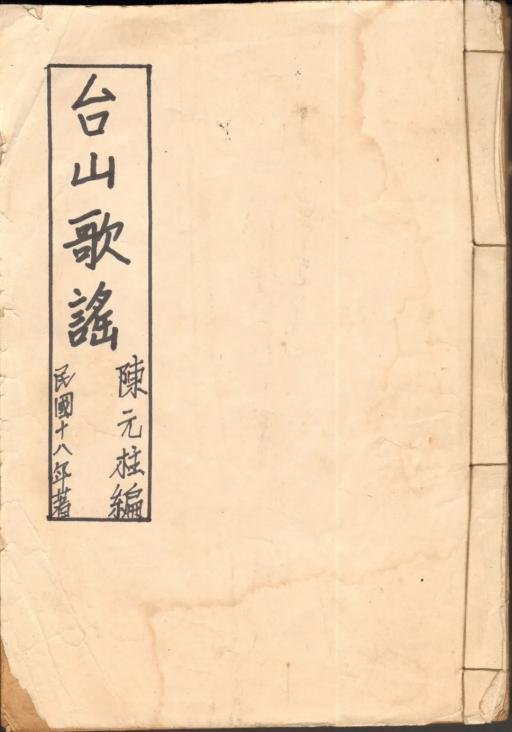 台山歌謠
陳元柱編
民國十八年著